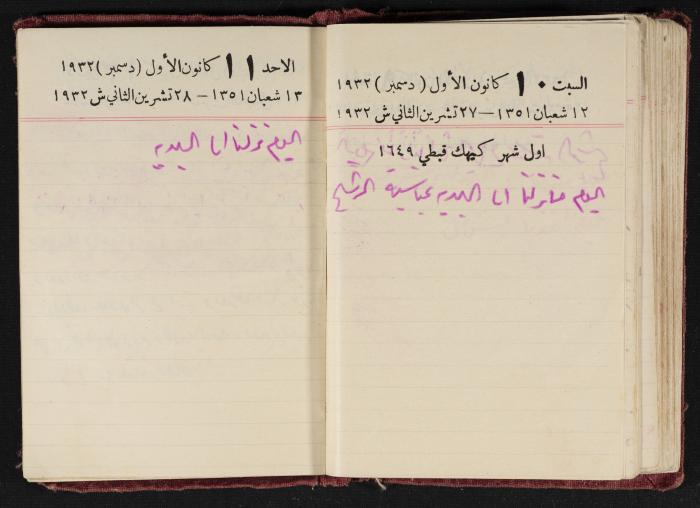 السبت ١٠ كانون الأول ( دسمبر ) ١٩٣٢
١٢ شعبان ١٣٥١ — ٢٧ تشرين الثاني ش ١٩٣٢
اول شهر كيهك قبطي ١٦٤٩
اليوم ما نزلنا الى البلديه بمناسبة الترشيح
الاحد ١١ كانون الأول ( دسمبر ) ١٩٣٢
١٣ شعبان ١٣٥١ — ٢٨ تشرين الثاني ش ١٩٣٢
اليوم نزلنا الى البلديه